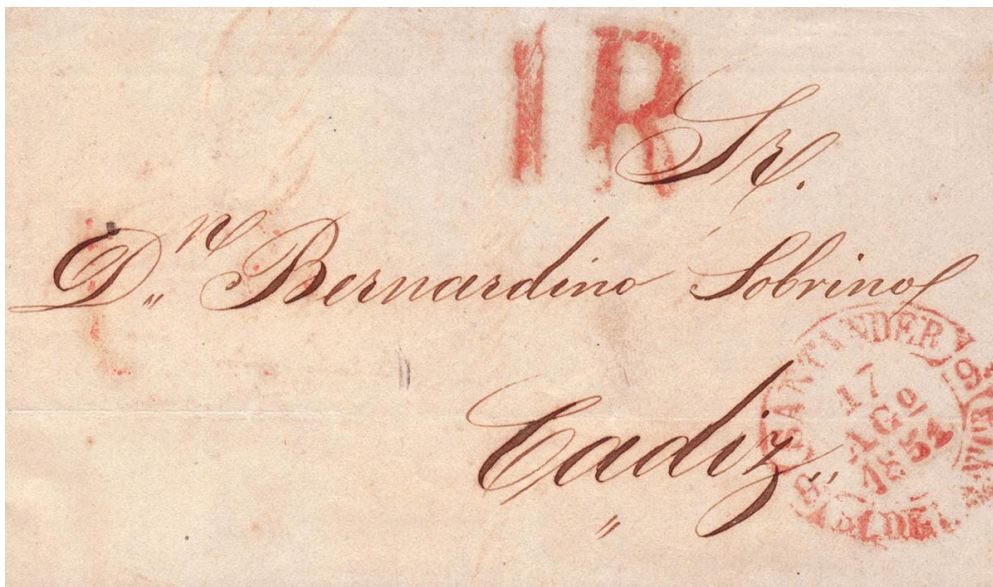 1R
Sr.
Dn. Bernardino Sobrino
Cadiz
SANTANDER
17
AGO
185